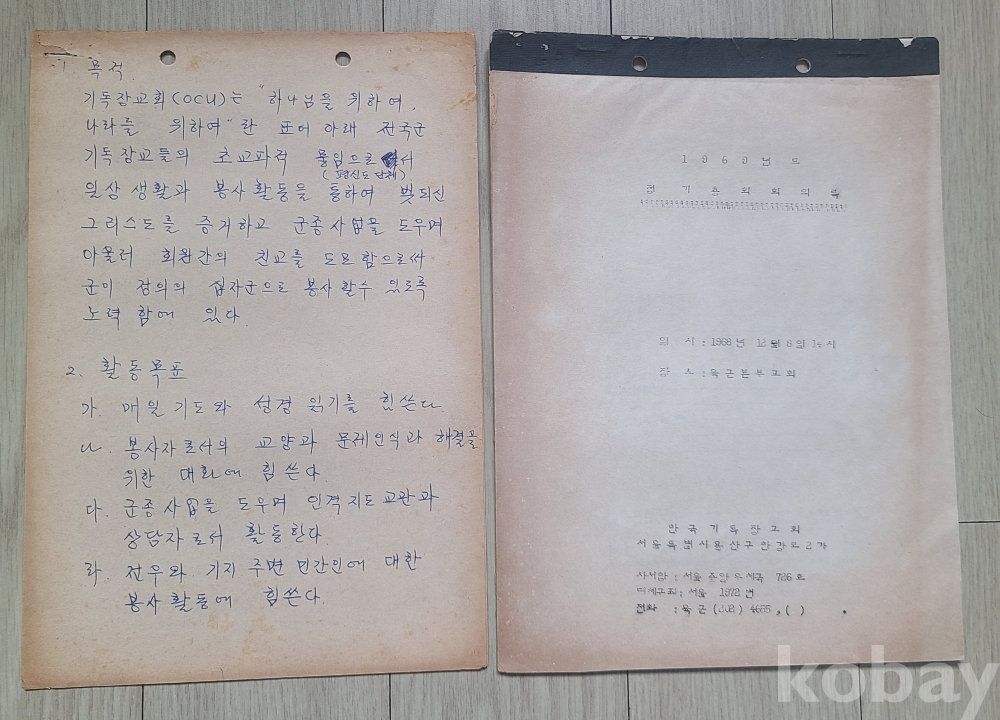 1. 목적
기독장교회(OCU)는 "하나님을 위하여,
나라를 위하여"란 표어 아래 전국군
기독장교들의 초교파적 모임으로서
(평신도단체)
일상생활과 봉사활동을 통하여
그리스도를 증거하고 군종사업을 도우며
아울러 회원간의 친교를 도모함으로써
군이 정의의 십자군으로 봉사할수 있도록
노력함에 있다.
2. 활동목표
가. 매일 기도와 성경 읽기를 힘쓴다
나. 봉사자로서의 교양과 문제인식과 해결을
위한 대화에 힘쓴다.
다. 군종사업을 도우며 인격지도교관과
상담자로서 활동한다.
라. 전우와 기지 주변 민간인에 대한
봉사활동에 힘쓴다.
1969년도
정기총회회의록
일 시 : 1968년 12월 8일 14시
장 소 : 육군본부교회
한국기독장교회
서울특별시용산구한강로2가
사서함 : 서울 중앙우체국 786호
대체구좌 : 서울 1972번
전화 : 육군 4685, ( )
kobay